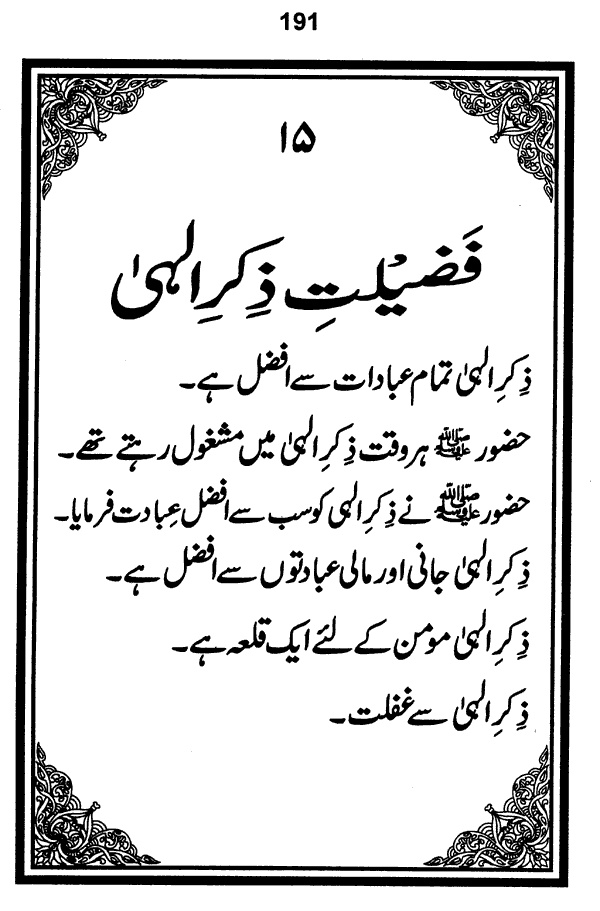 191
۱۵
فَضیْلتِ ذِکرِ الٰہی
ذِکرِ الٰہی تمام عبادات سے افضل ہے۔
حضور ﷺ ہر وقت ذِکرِ الٰہی میں مشغول رہتے تھے۔
حضور ﷺ نے ذِکرِ الٰہی کو سب سے افضل عِبادت فرمایا۔
ذِکرِ الٰہی جانی اور مالی عبادتوں سے افضل ہے۔
ذِکرِ الٰہی مومن کے لئے ایک قلعہ ہے۔
ذِکرِ الٰہی سے غفلت۔